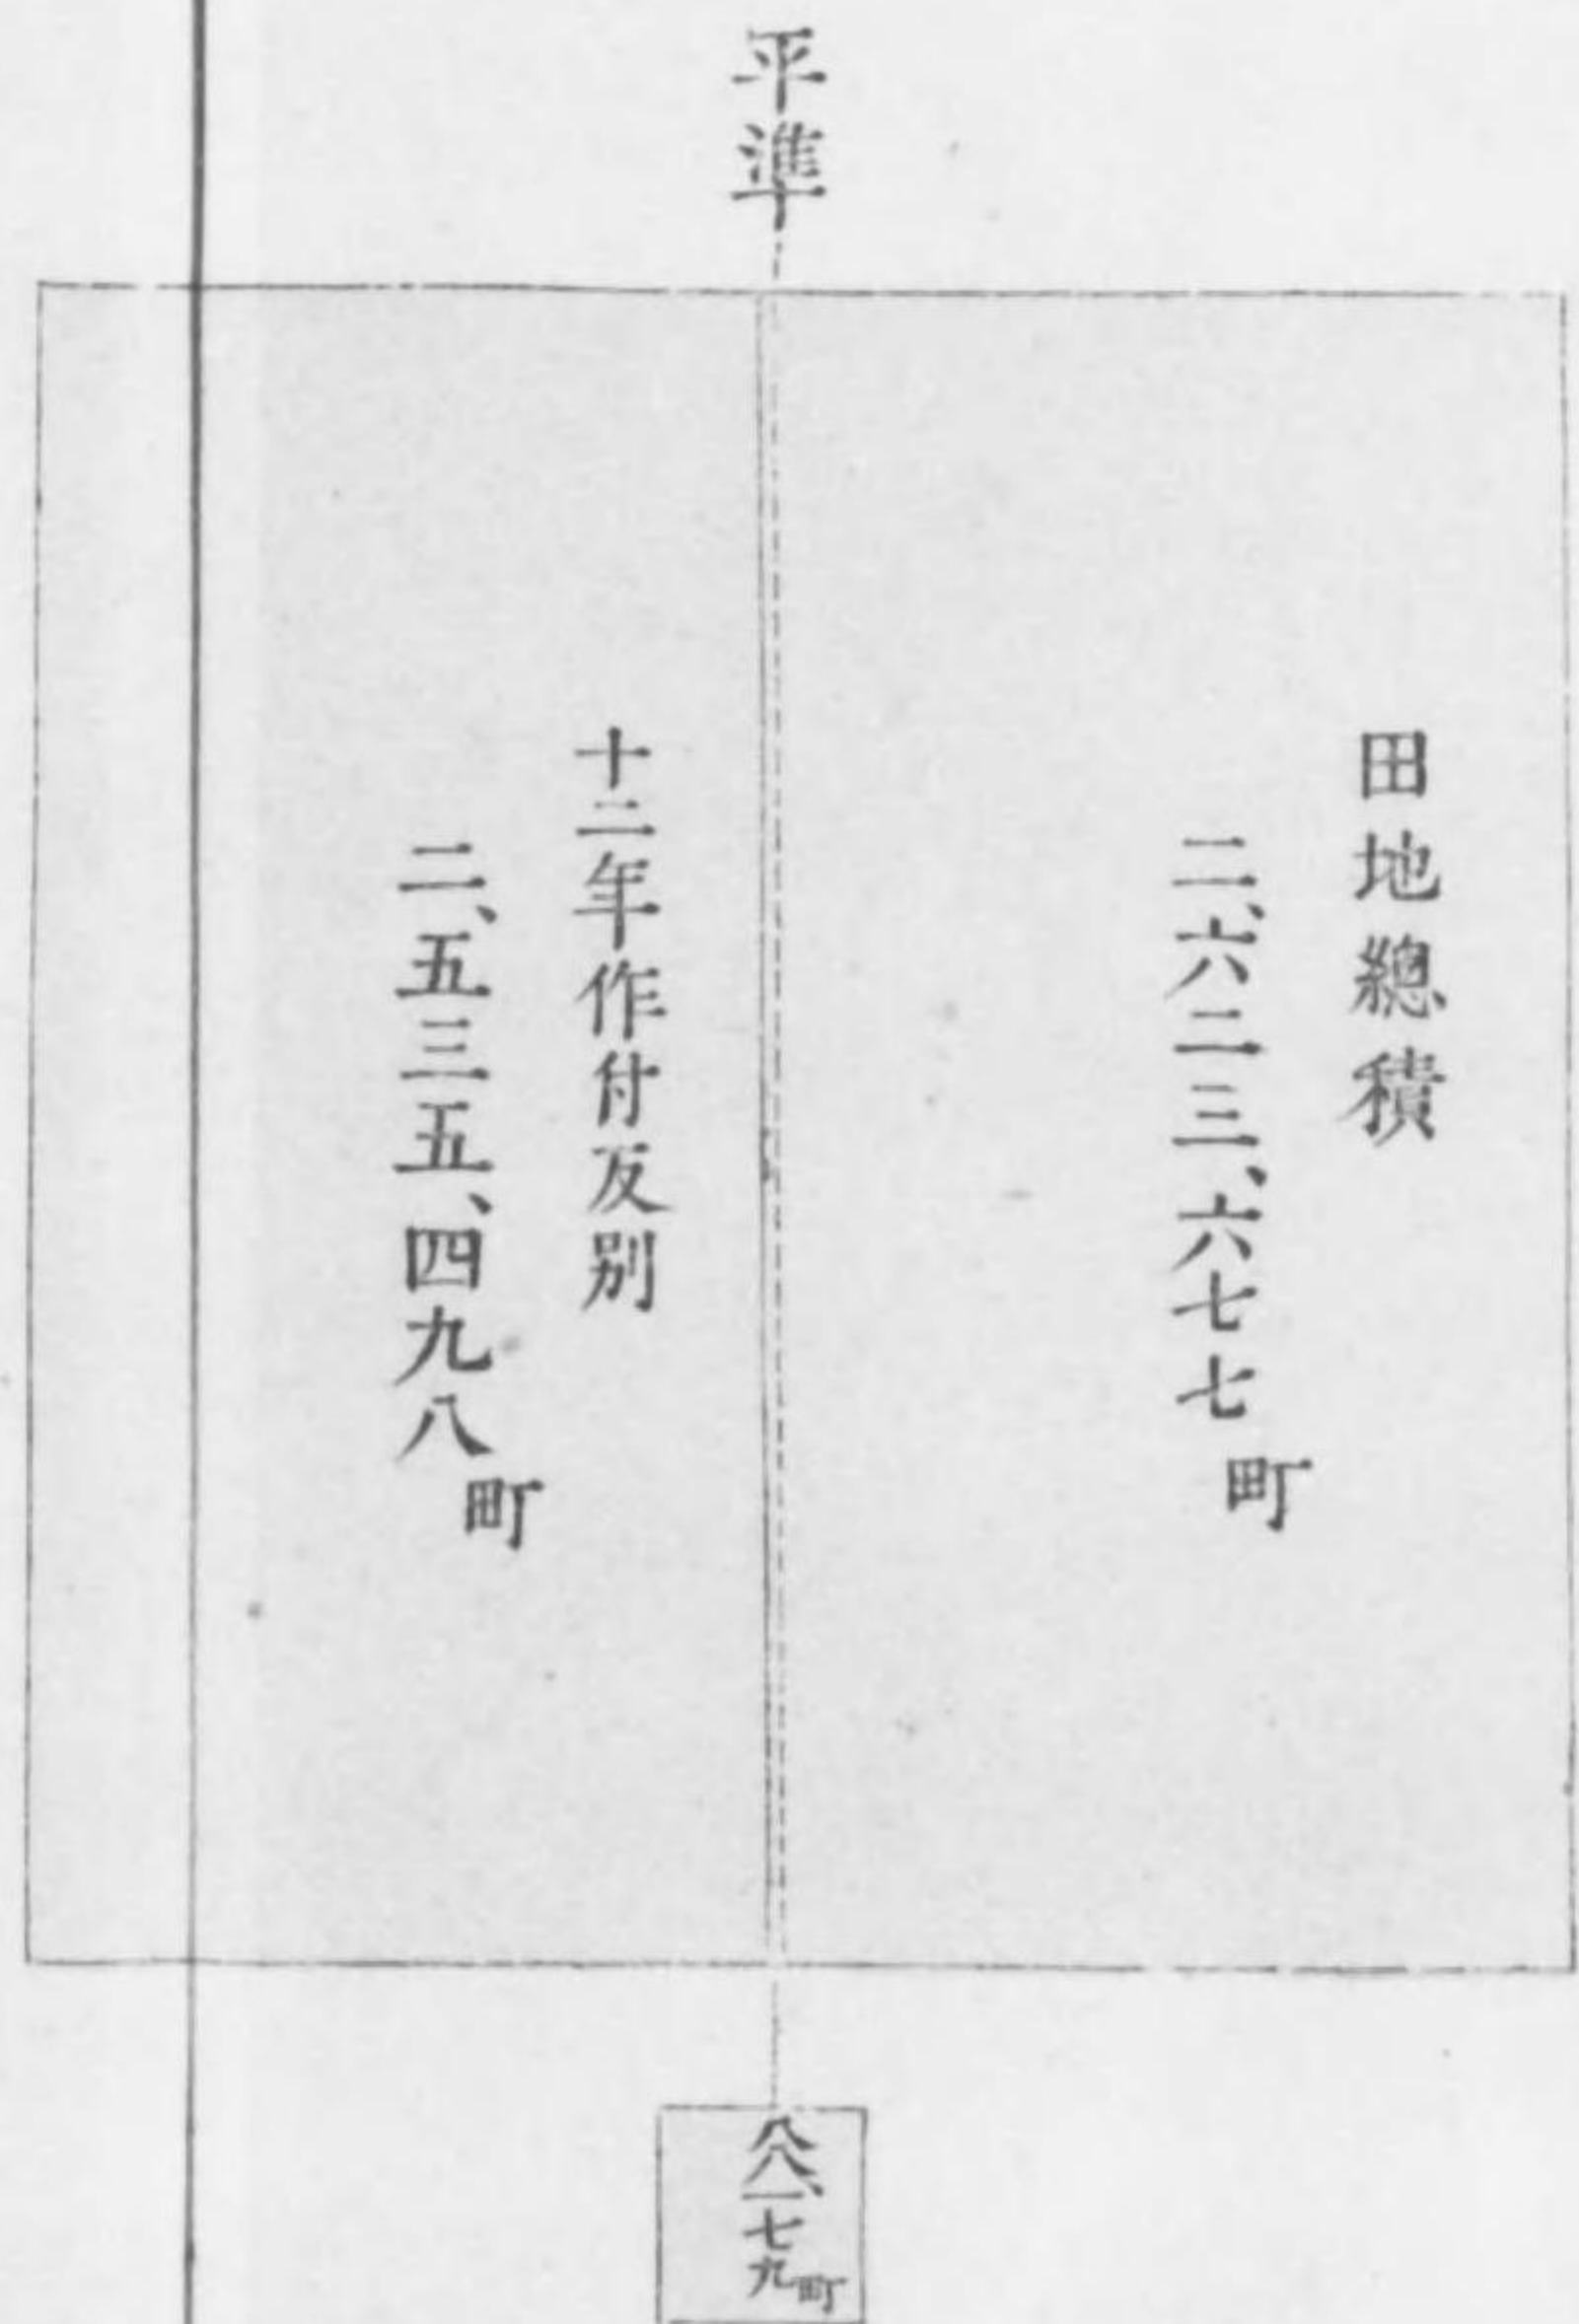 田地總積
二、六二三、六七七町
平準
十二年作付反別
二、五三五、四九八町
八八、一七九町